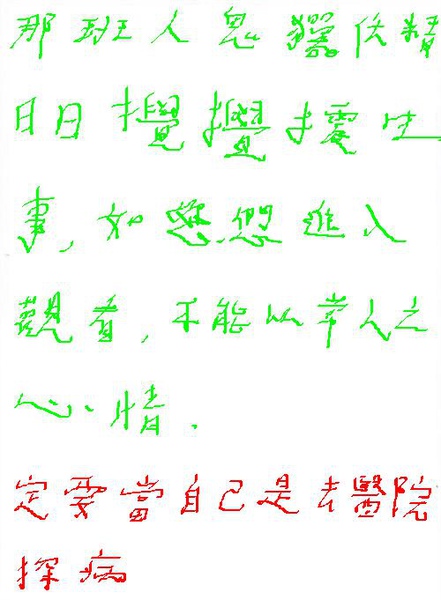 那班人鬼獵伥精
日日攪攪擾生
事,如您想進入
觀看,不能以常人之
心情.
定要當自己是去醫院
探病